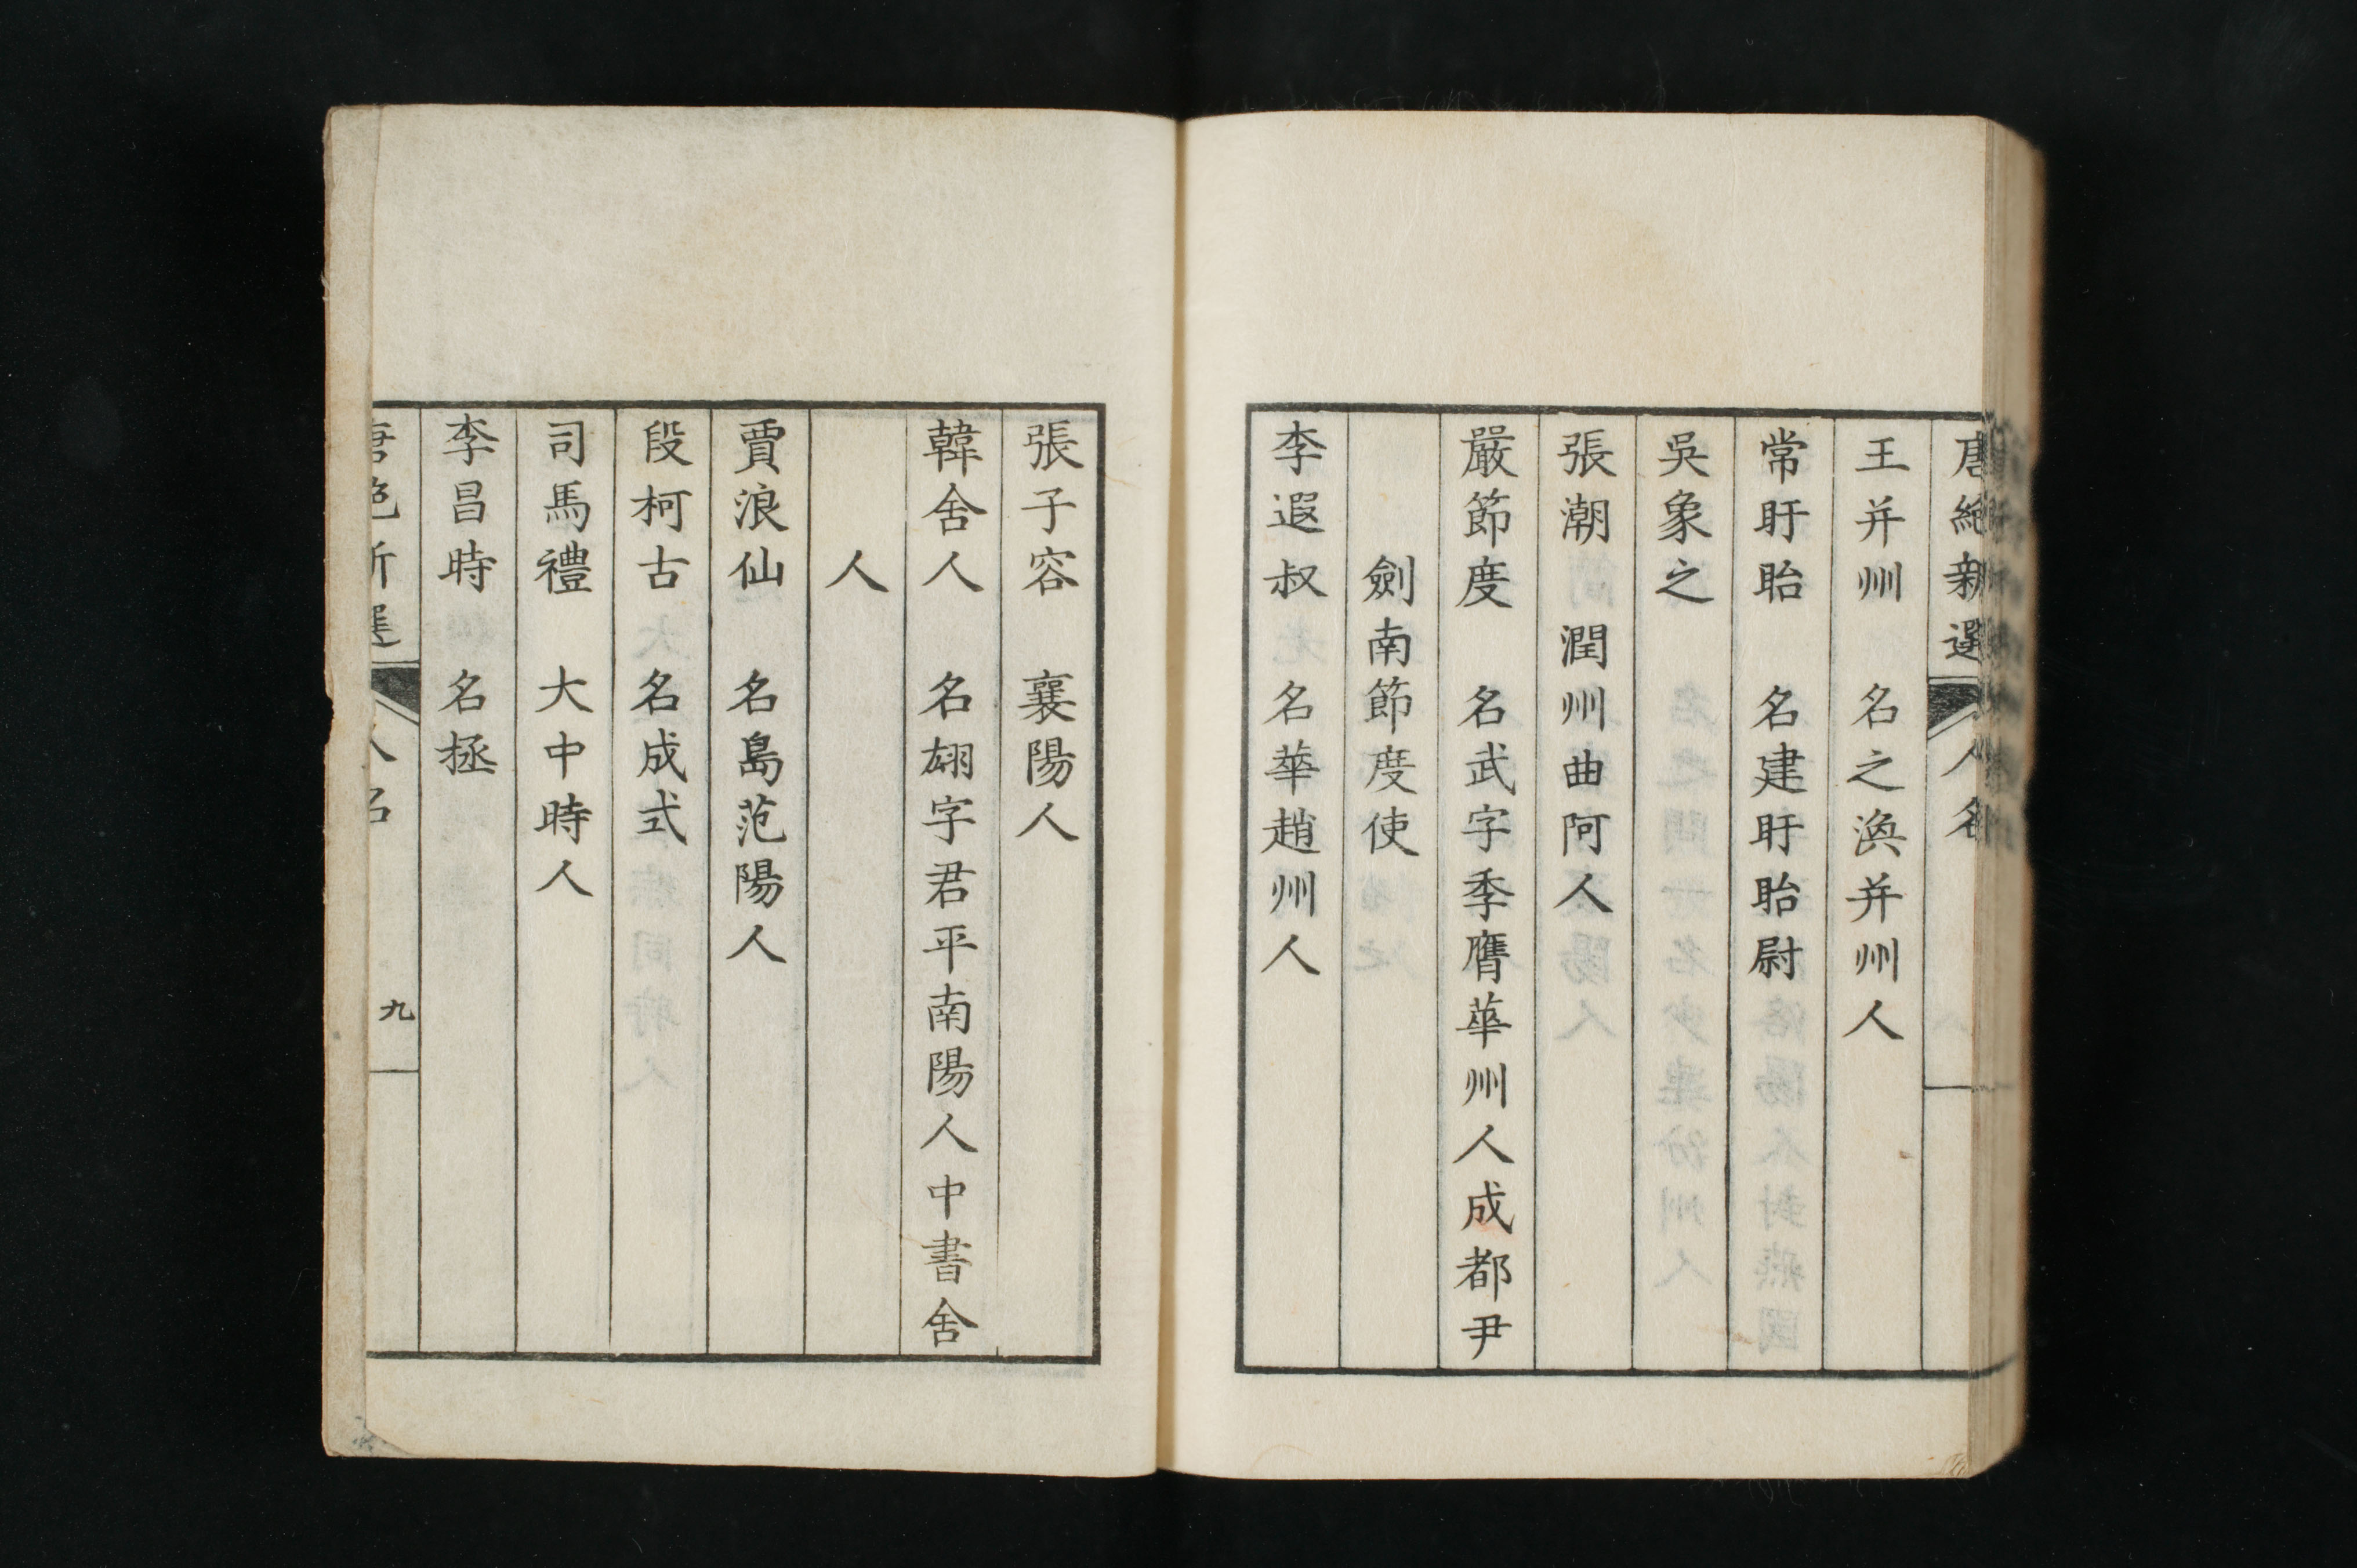 唐絶新選 人名
王并州 名之渙并州人
常盱眙 名建盱眙尉
吳象之
張潮 潤州曲阿人
嚴節度 名武字季膺華州人成都尹
劍南節度使
李遐叔 名華趙州人
張子容 襄陽人
韓舍人 名翃字君平南陽人中書舍
人
賈浪仙 名島范陽人
段柯古 名成式
司馬禮 大中時人
李昌時 名拯
唐絶新選 人名 九